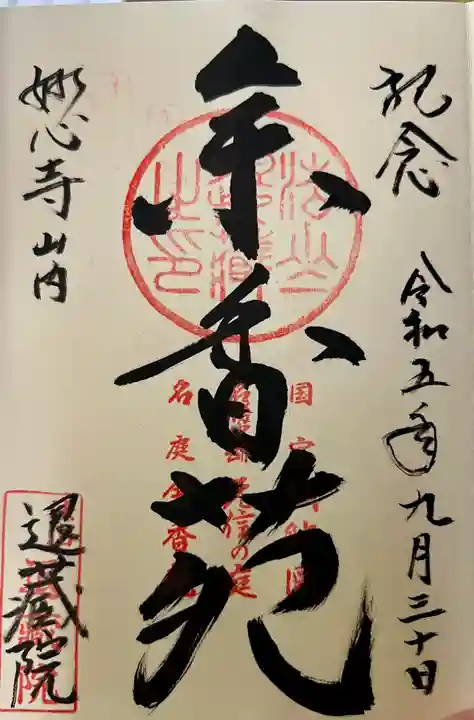 記念 令和五年九月三十日
余香苑
国宝瓢鮎図
元信の庭
名庭余香苑
妙心寺山内
退蔵院